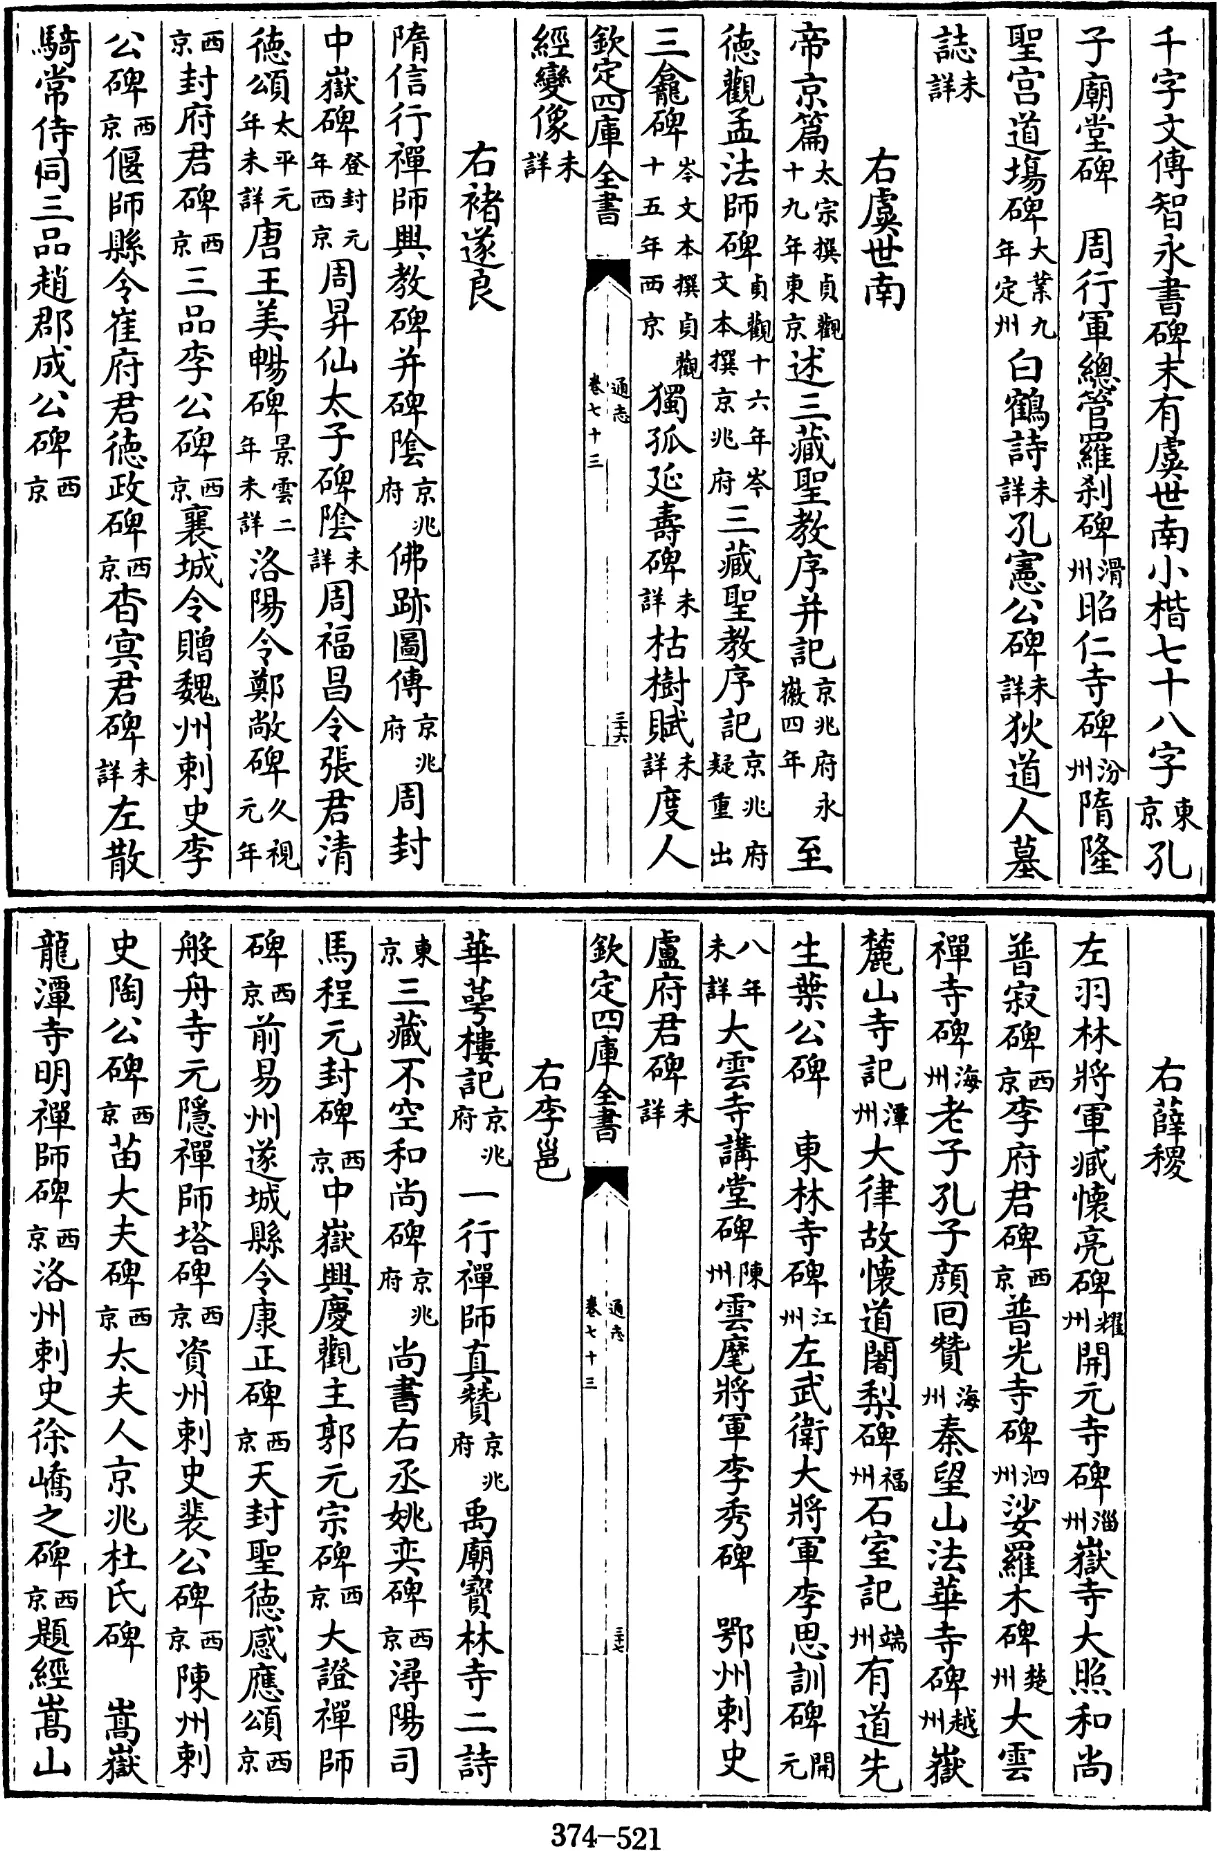 千字文傳智永書碑末有虞世南小楷七十八字東京孔
子廟堂碑　周行軍總管羅刹碑滑州昭仁寺碑汾州隋隆
聖宫道場碑大業九年定州白鶴詩未詳孔憲公碑未詳狄道人墓
誌未詳
右虞世南
帝京篇太宗撰貞觀十九年東京述三藏聖教序并記京兆府永徽四年至
德觀孟法師碑貞觀十六年岑文本撰京兆府三藏聖教序記京兆府疑重出
三龕碑岑文本撰貞觀十五年西京獨孤延壽碑未詳枯樹賦未詳度人
欽定四庫全書　通志卷七十三　三十六
經變像未詳
右褚遂良
隋信行禪師興教碑并碑陰京兆府佛跡圖傳京兆府周封
中嶽碑登封元年西京周昇仙太子碑陰未詳周福昌令張君清
德頌太平元年未詳唐王美暢碑景雲二年未詳洛陽令鄭敞碑久視元年
西京封府君碑西京三品李公碑西京襄城令贈魏州刺史李
公碑西京偃師縣令崔府君德政碑西京杳冥君碑未詳左散
騎常侍同三品趙郡成公碑西京
右薛稷
左羽林將軍臧懷亮碑耀州開元寺碑淄州嶽寺大照和尚
普寂碑西京李府君碑西京普光寺碑泗州娑羅木碑楚州大雲
禪寺碑海州老子孔子顔回贊海州秦望山法華寺碑越州嶽
麓山寺記潭州大律故懷道闍梨碑福州石室記端州有道先
生葉公碑　東林寺碑江州左武衛大將軍李思訓碑開元
八年未詳大雲寺講堂碑陳州雲麾將軍李秀碑　鄂州刺史
盧府君碑未詳
欽定四庫全書　通志卷七十三　三十七
右李邕
華萼樓記京兆府一行禪師真贊京兆府禹廟寶林寺二詩
東京三藏不空和尚碑京兆府尚書右丞姚奕碑西京潯陽司
馬程元封碑西京中嶽興慶觀主郭元宗碑西京大證禪師
碑西京前易州遂城縣令康正碑西京天封聖德感應頌西京
般舟寺元隱禪師塔碑西京資州刺史裴公碑西京陳州刺
史陶公碑西京苗大夫碑西京太夫人京兆杜氏碑　嵩嶽
龍潭寺明禪師碑西京洛州刺史徐嶠之碑西京題經嵩山
374-521